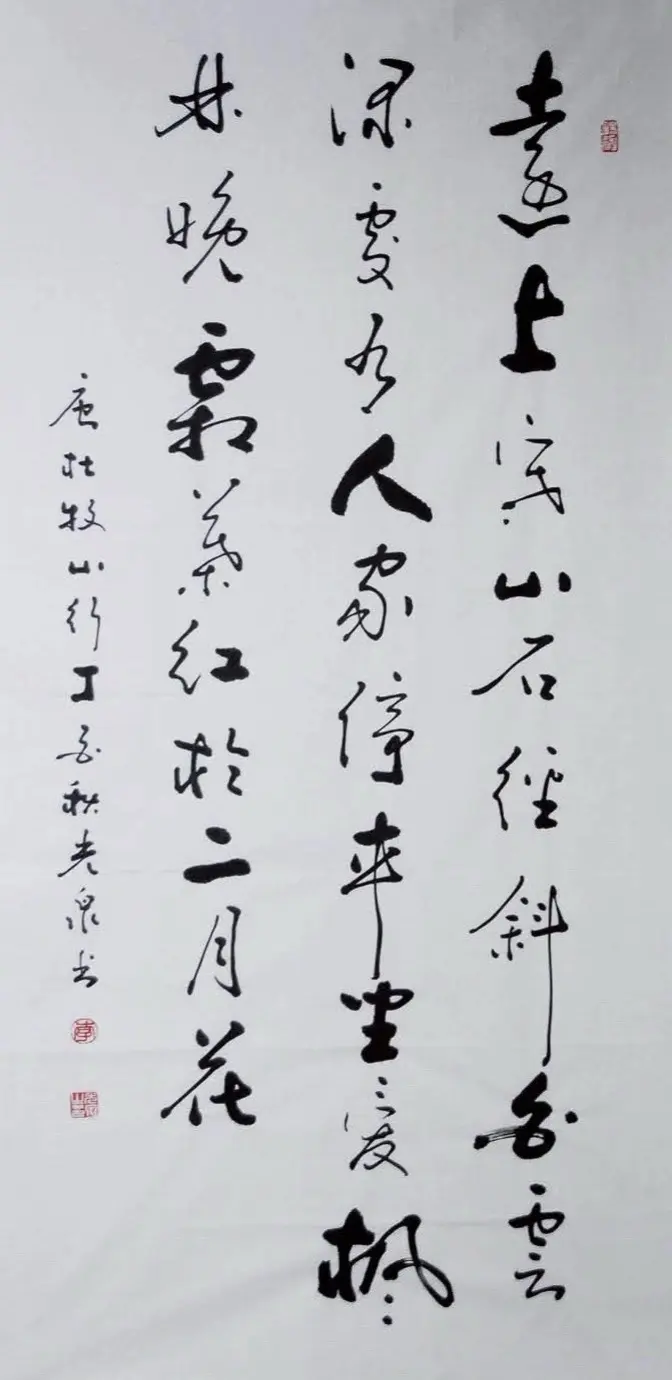 遠上寒山石徑斜白雲
深處有人家停車坐愛楓
林晚霜葉紅於二月花
唐杜牧山行丁酉秋泉书
李